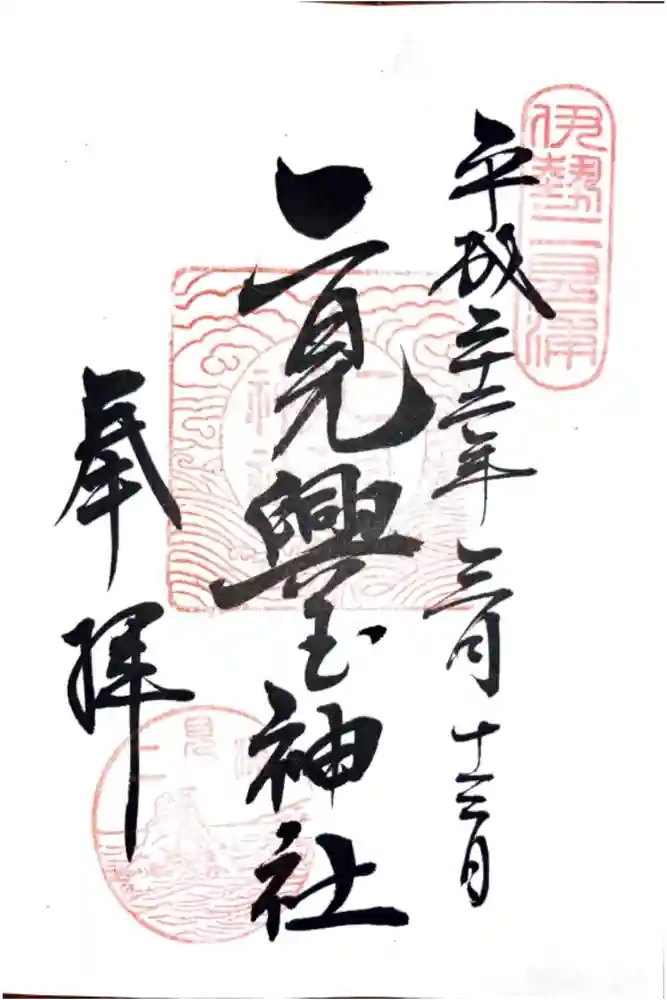 伊勢二見浦
平成二十二年三月十三日
二見興玉神社
奉拝
二見浦